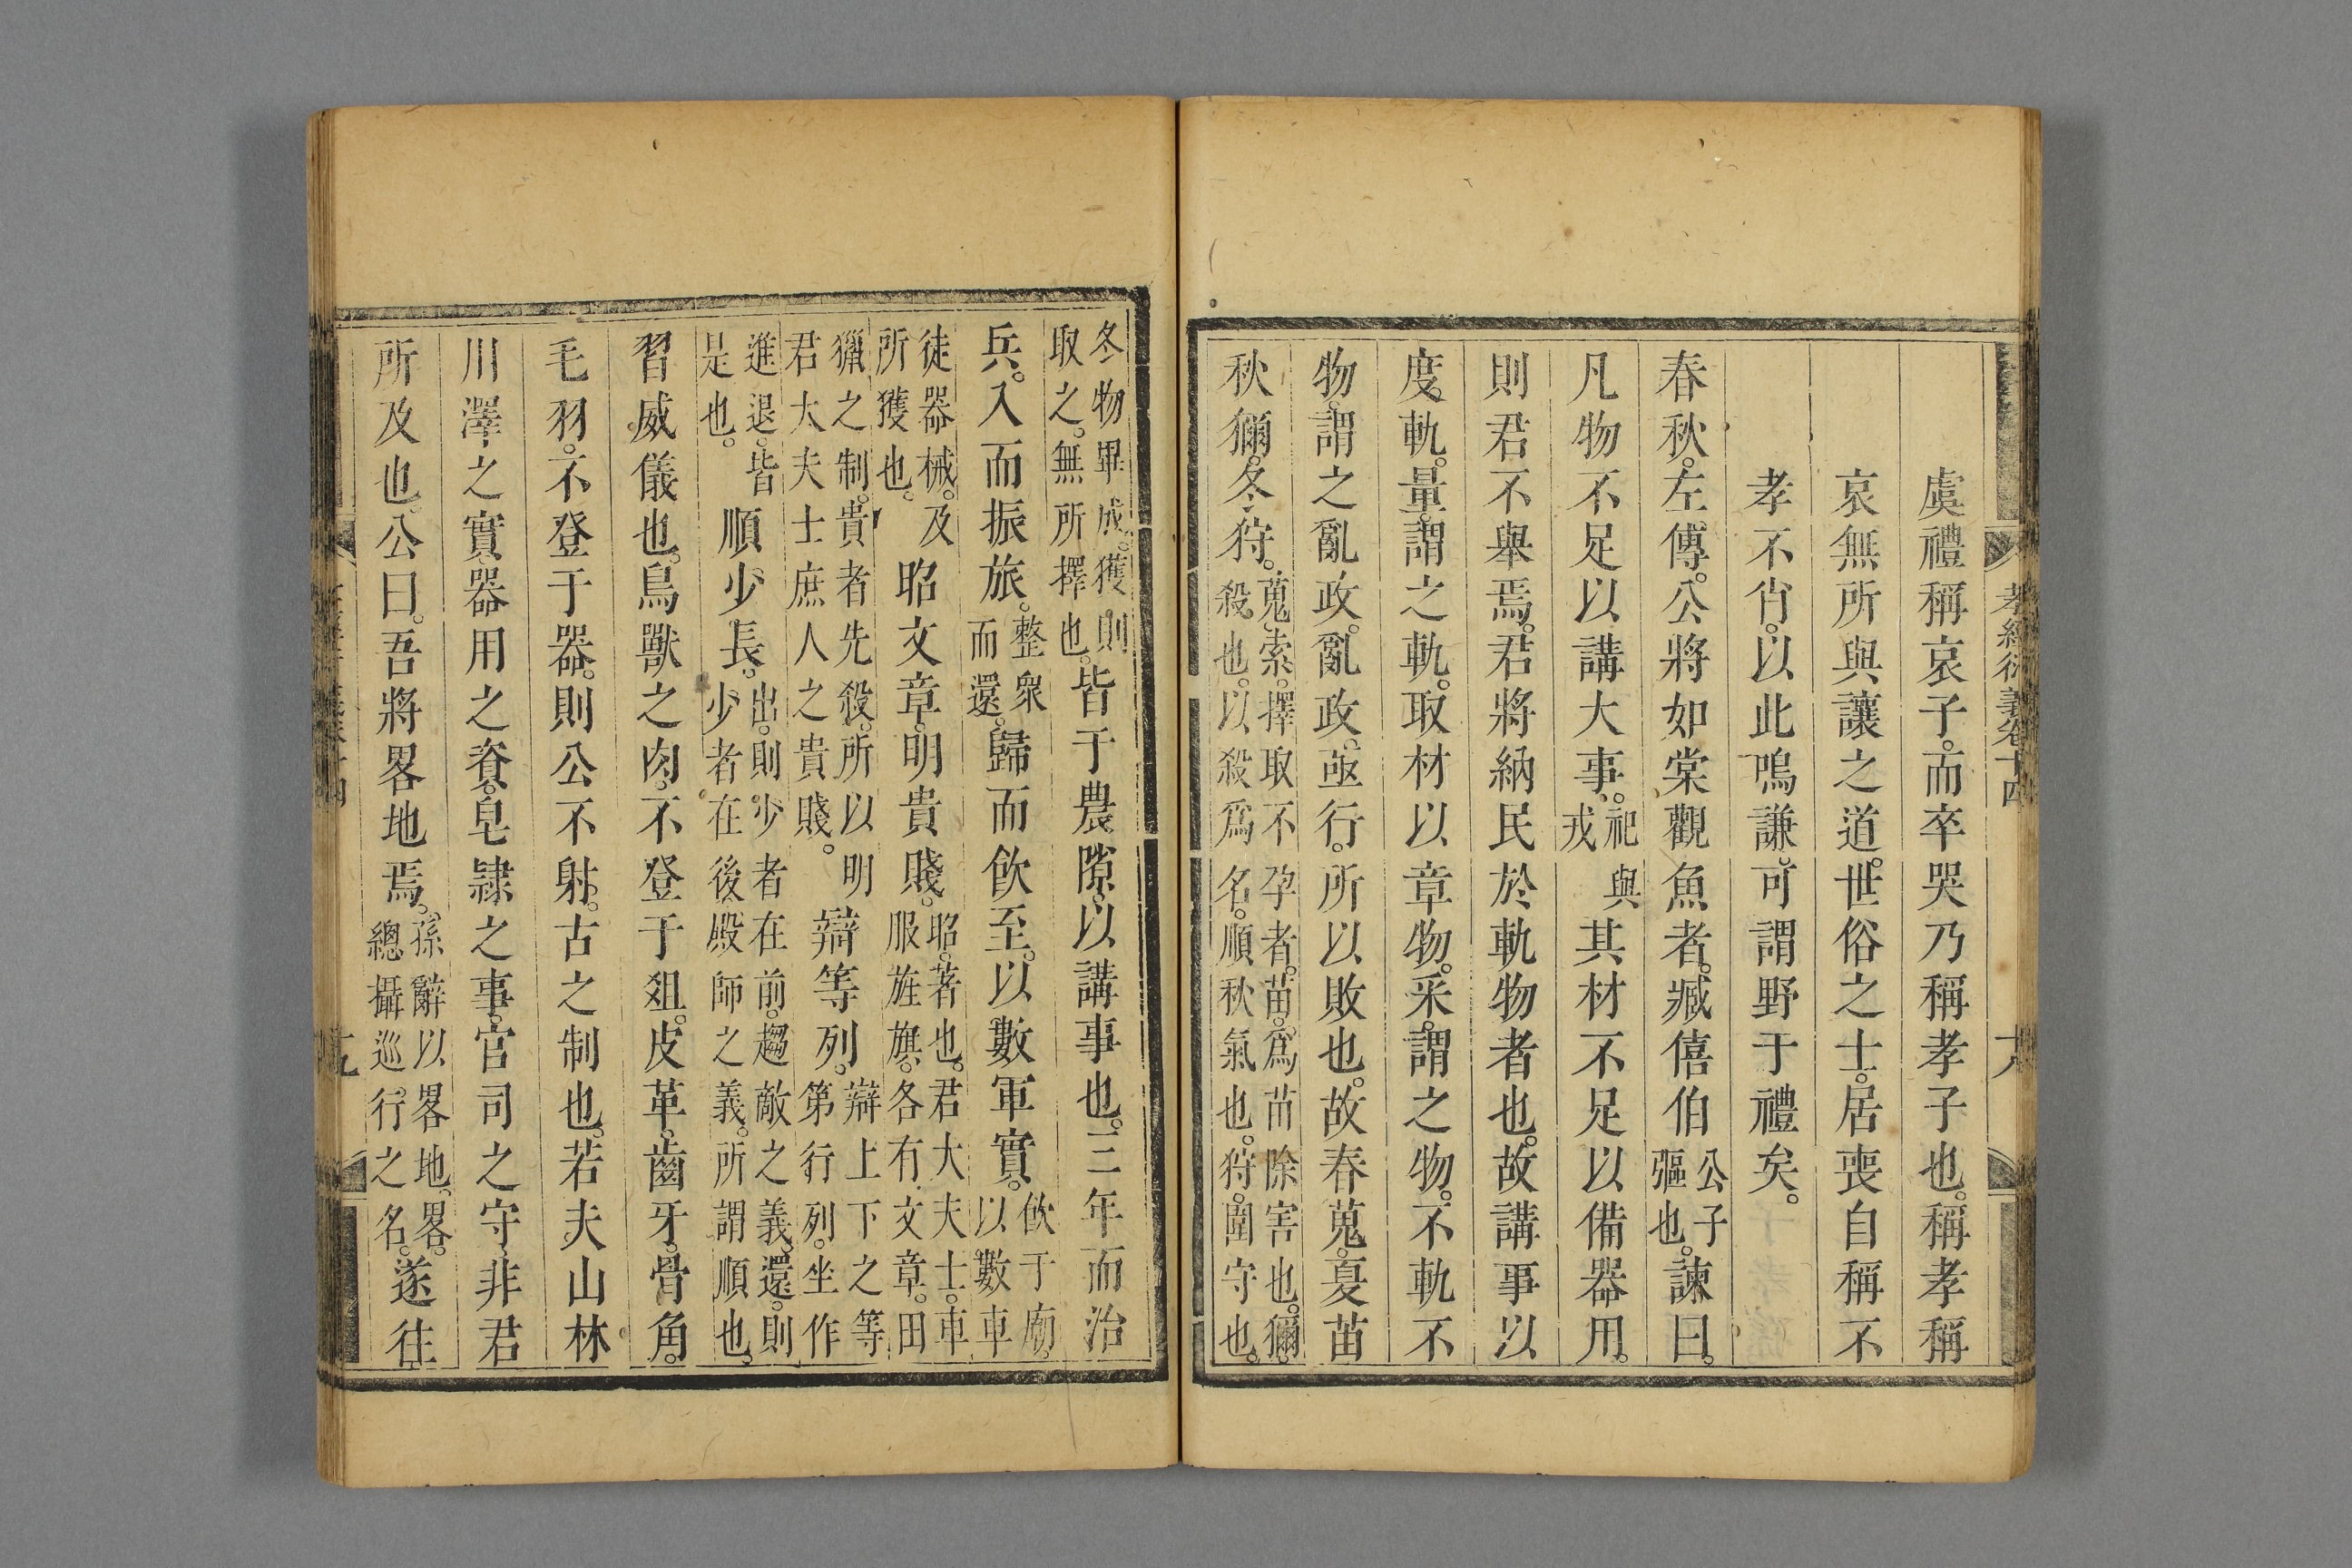 孝經衍義卷十四
虞禮稱哀子。而卒哭乃稱孝子也。稱孝稱
哀無所與讓之道。世俗之士。居喪自稱不
孝不肖。以此鳴謙。可謂野于禮矣。
春秋。左傳。公將如棠觀魚者。臧僖伯公子彄也。諫曰。
凡物不足以講大事。祀與戎其材不足以備器用。
則君不舉焉。君將納民於軌物者也。故講事以
度軌。量。謂之軌。取材以章物。采。謂之物。不軌不
物。謂之亂政。亂政。亟行。所以敗也。故春蒐。夏苗
秋獮。冬狩。蒐。索。擇取不孕者。苗。爲苗除害也。獮。殺也。以殺爲名。順秋氣也。狩。圍守也。
冬物畢成。獲則取之。無所擇也。皆于農隙。以講事也。三年而治
兵。入而振旅。整眾而還。歸而飲至。以數軍實。飲于廟。以數車
徒器械。及所獲也。昭文章。明貴賤。昭。著也。君大夫士。車服旌旗。各有文章。田
獵之制。貴者先殺。所以明君大夫士庶人之貴賤。辯等列。辯上下之等第行列。坐作
進退。皆是也。順少長。出。則少者在前。趨敵之義。還。則少者在後。殿師之義。所謂順也。
習威儀也。鳥獸之肉。不登于俎。皮革。齒牙。骨角。
毛羽。不登于器。則公不射。古之制也。若夫山林
川澤之實。器用之資。皂隸之事。官司之守。非君
所及也。公曰。吾將畧地焉。孫辭以畧地。畧。總攝巡行之名。遂往